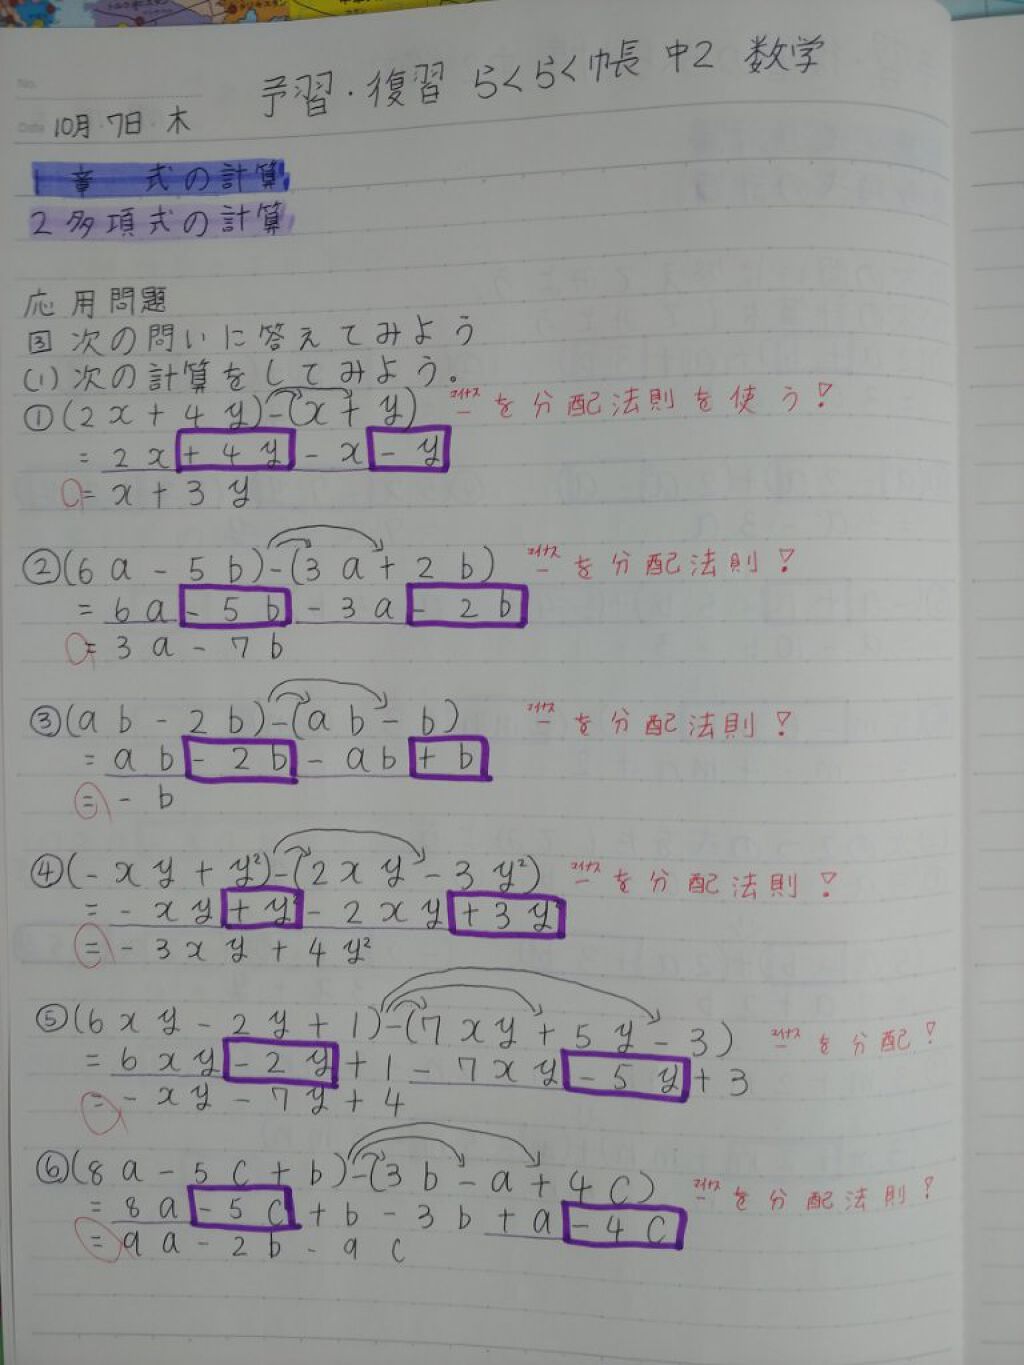 トルクメニスタン
タジキスタン
No.
予習・復習 らくらく帳 中2 数学
Date 10月・7日・木
1章 式の計算
2 多項式の計算
応用問題
3 次の問いに答えてみよう
(1) 次の計算をしてみよう。
①(2x+4y)-(x+y) マイナス -を分配法則を使う!
=2x+4y-x-y
=x+3y
②(6a-5b)-(3a+2b) マイナス -を分配法則!
=6a-5b-3a-2b
=3a-7b
③(ab-2b)-(ab-b) マイナス -を分配法則!
=ab-2b-ab+b
=-b
④(-xy+y²)-(2xy-3y²) マイナス -を分配法則!
=-xy+y²-2xy+3y²
=-3xy+4y²
⑤(6xy-2y+1)-(7xy+5y-3) マイナス -を分配!
=6xy-2y+1-7xy-5y+3
=-xy-7y+4
⑥(8a-5c+b)-(3b-a+4c) マイナス -を分配法則!
=8a-5c+b-3b+a-4c
=9a-2b-9c